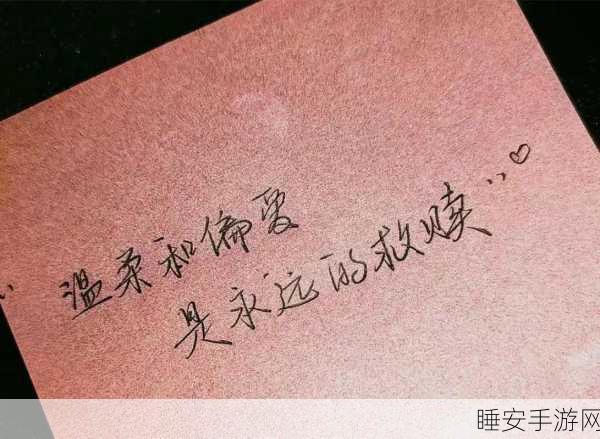 温柔和偏爱
是永远的救赎
睡安手游网